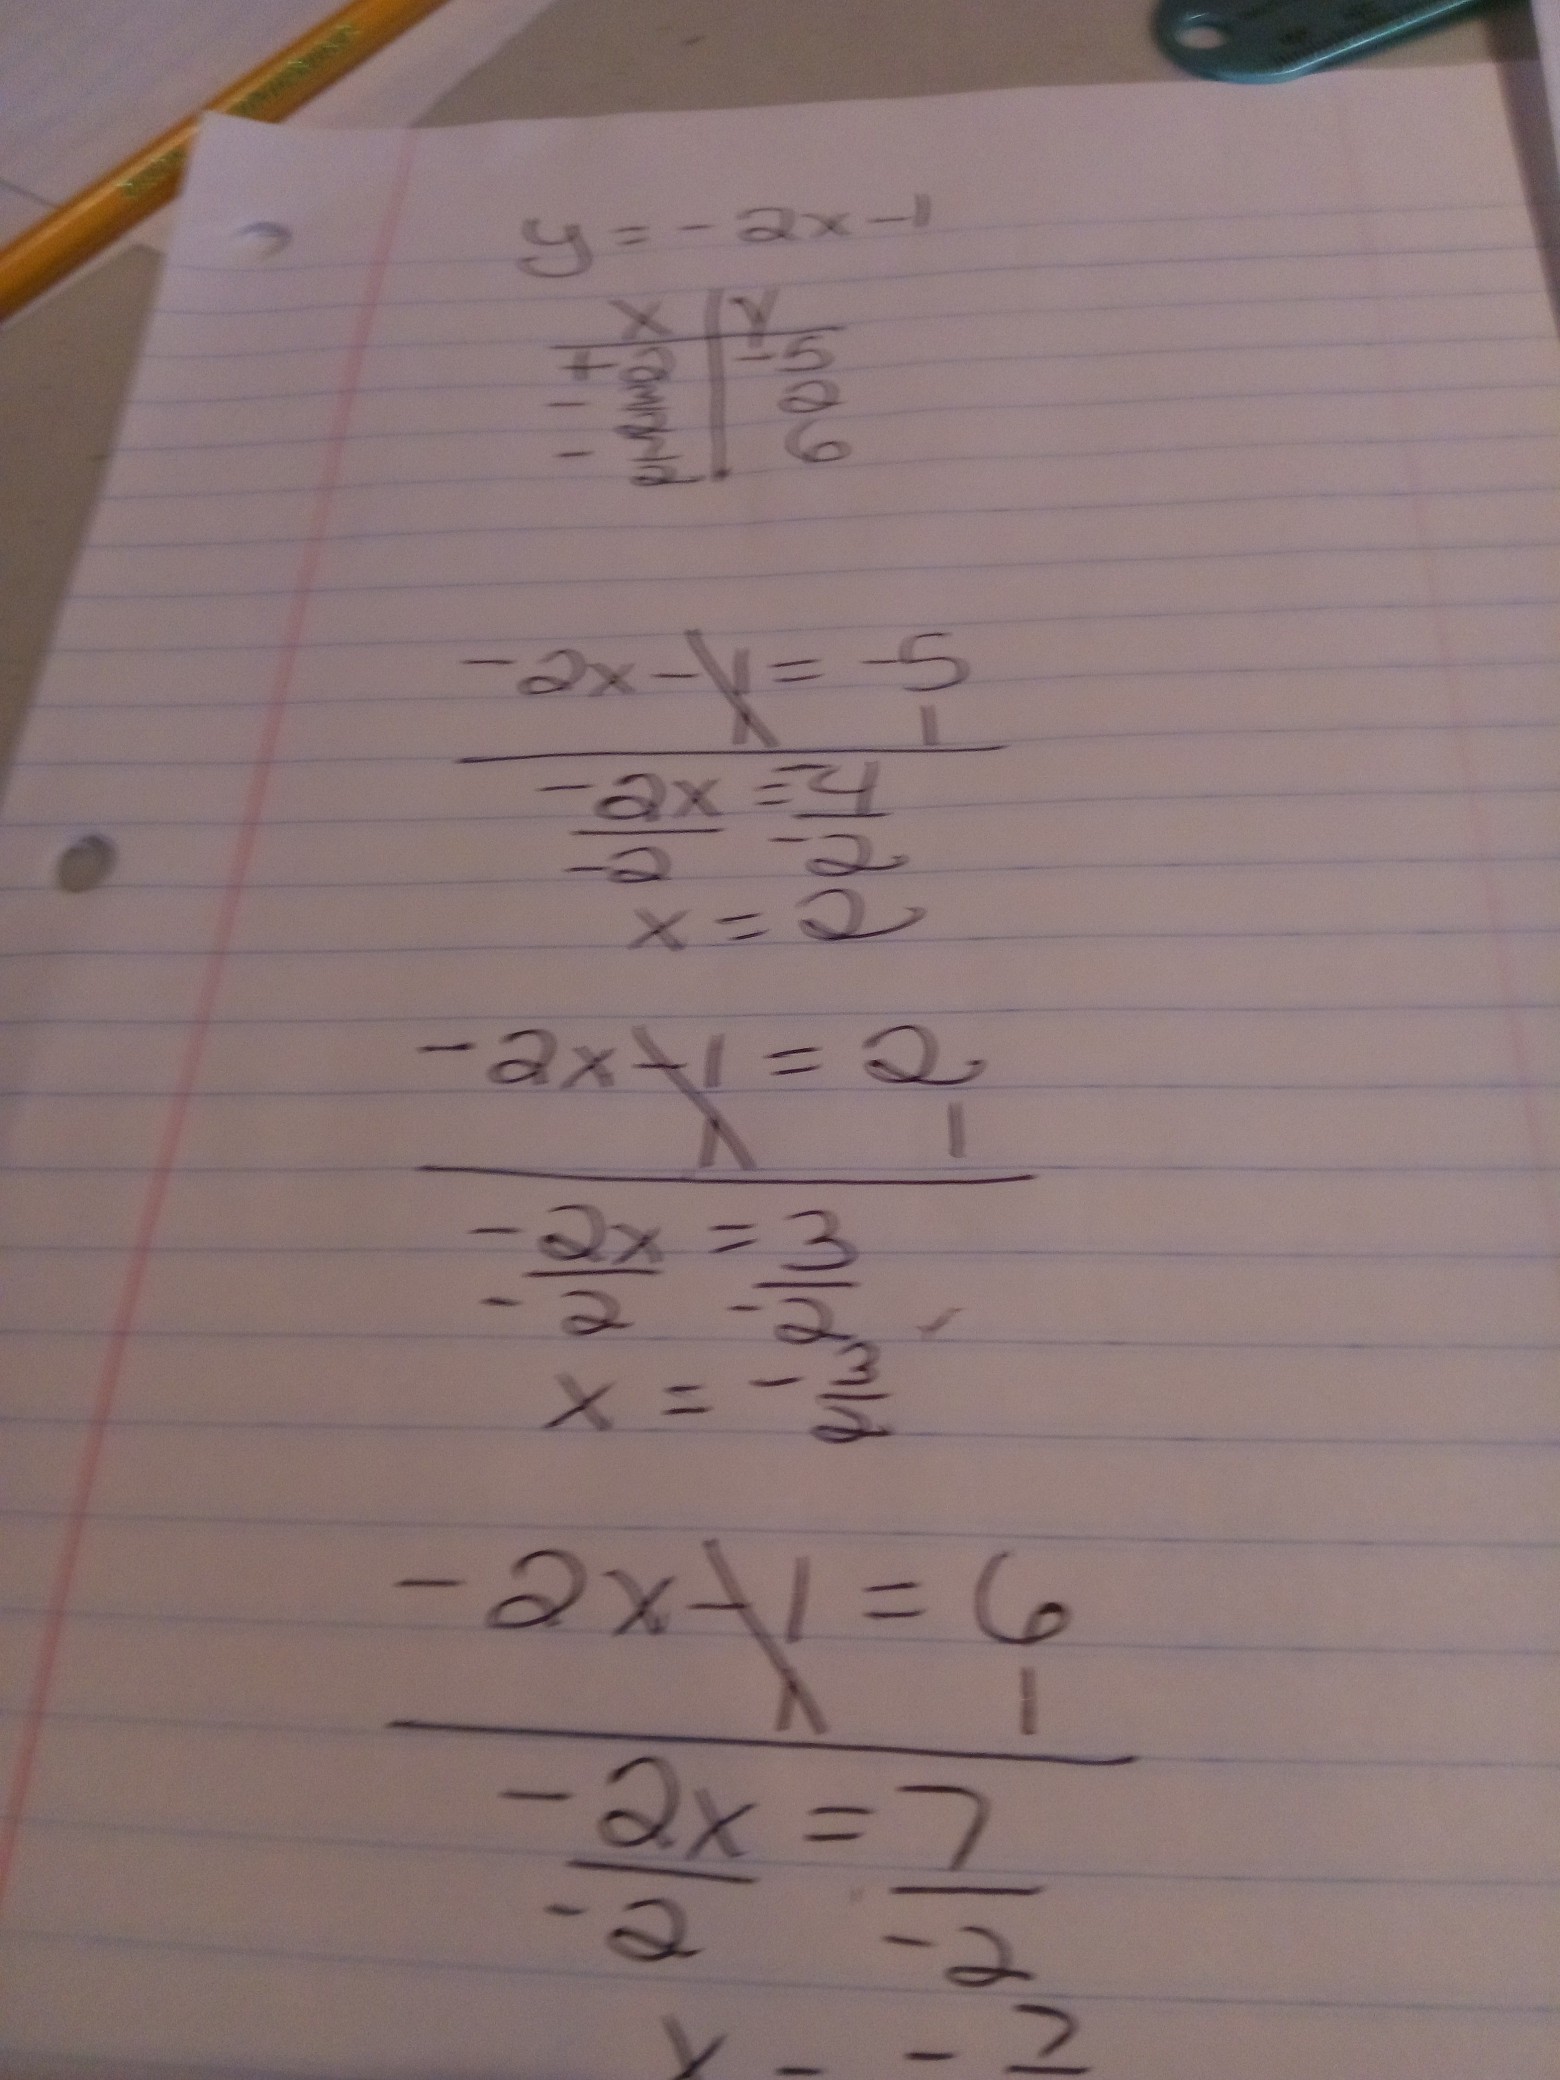 y = -2x - 1
x | y
+ 2 | -5
- 3/2 | 2
- 7/2 | 6
-2x - 1 = -5
1 1
-2x = -4
-2 -2
x = 2
-2x - 1 = 2
1 1
-2x = 3
-2 -2
x = - 3/2
-2x - 1 = 6
1 1
-2x = 7
-2 -2
x = - 7